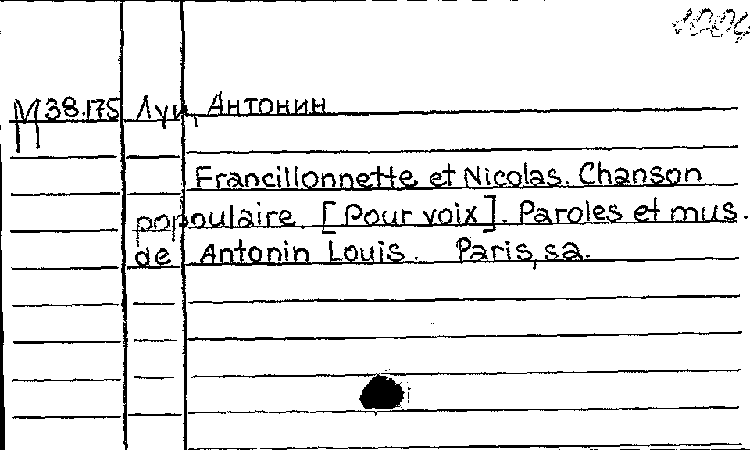 1004
М38.175 Луи, Антонин
П
Francillonnette et Nicolas. Chanson
popoulaire. [Pour voix]. Paroles et mus.
de Antonin Louis. Paris, sa.